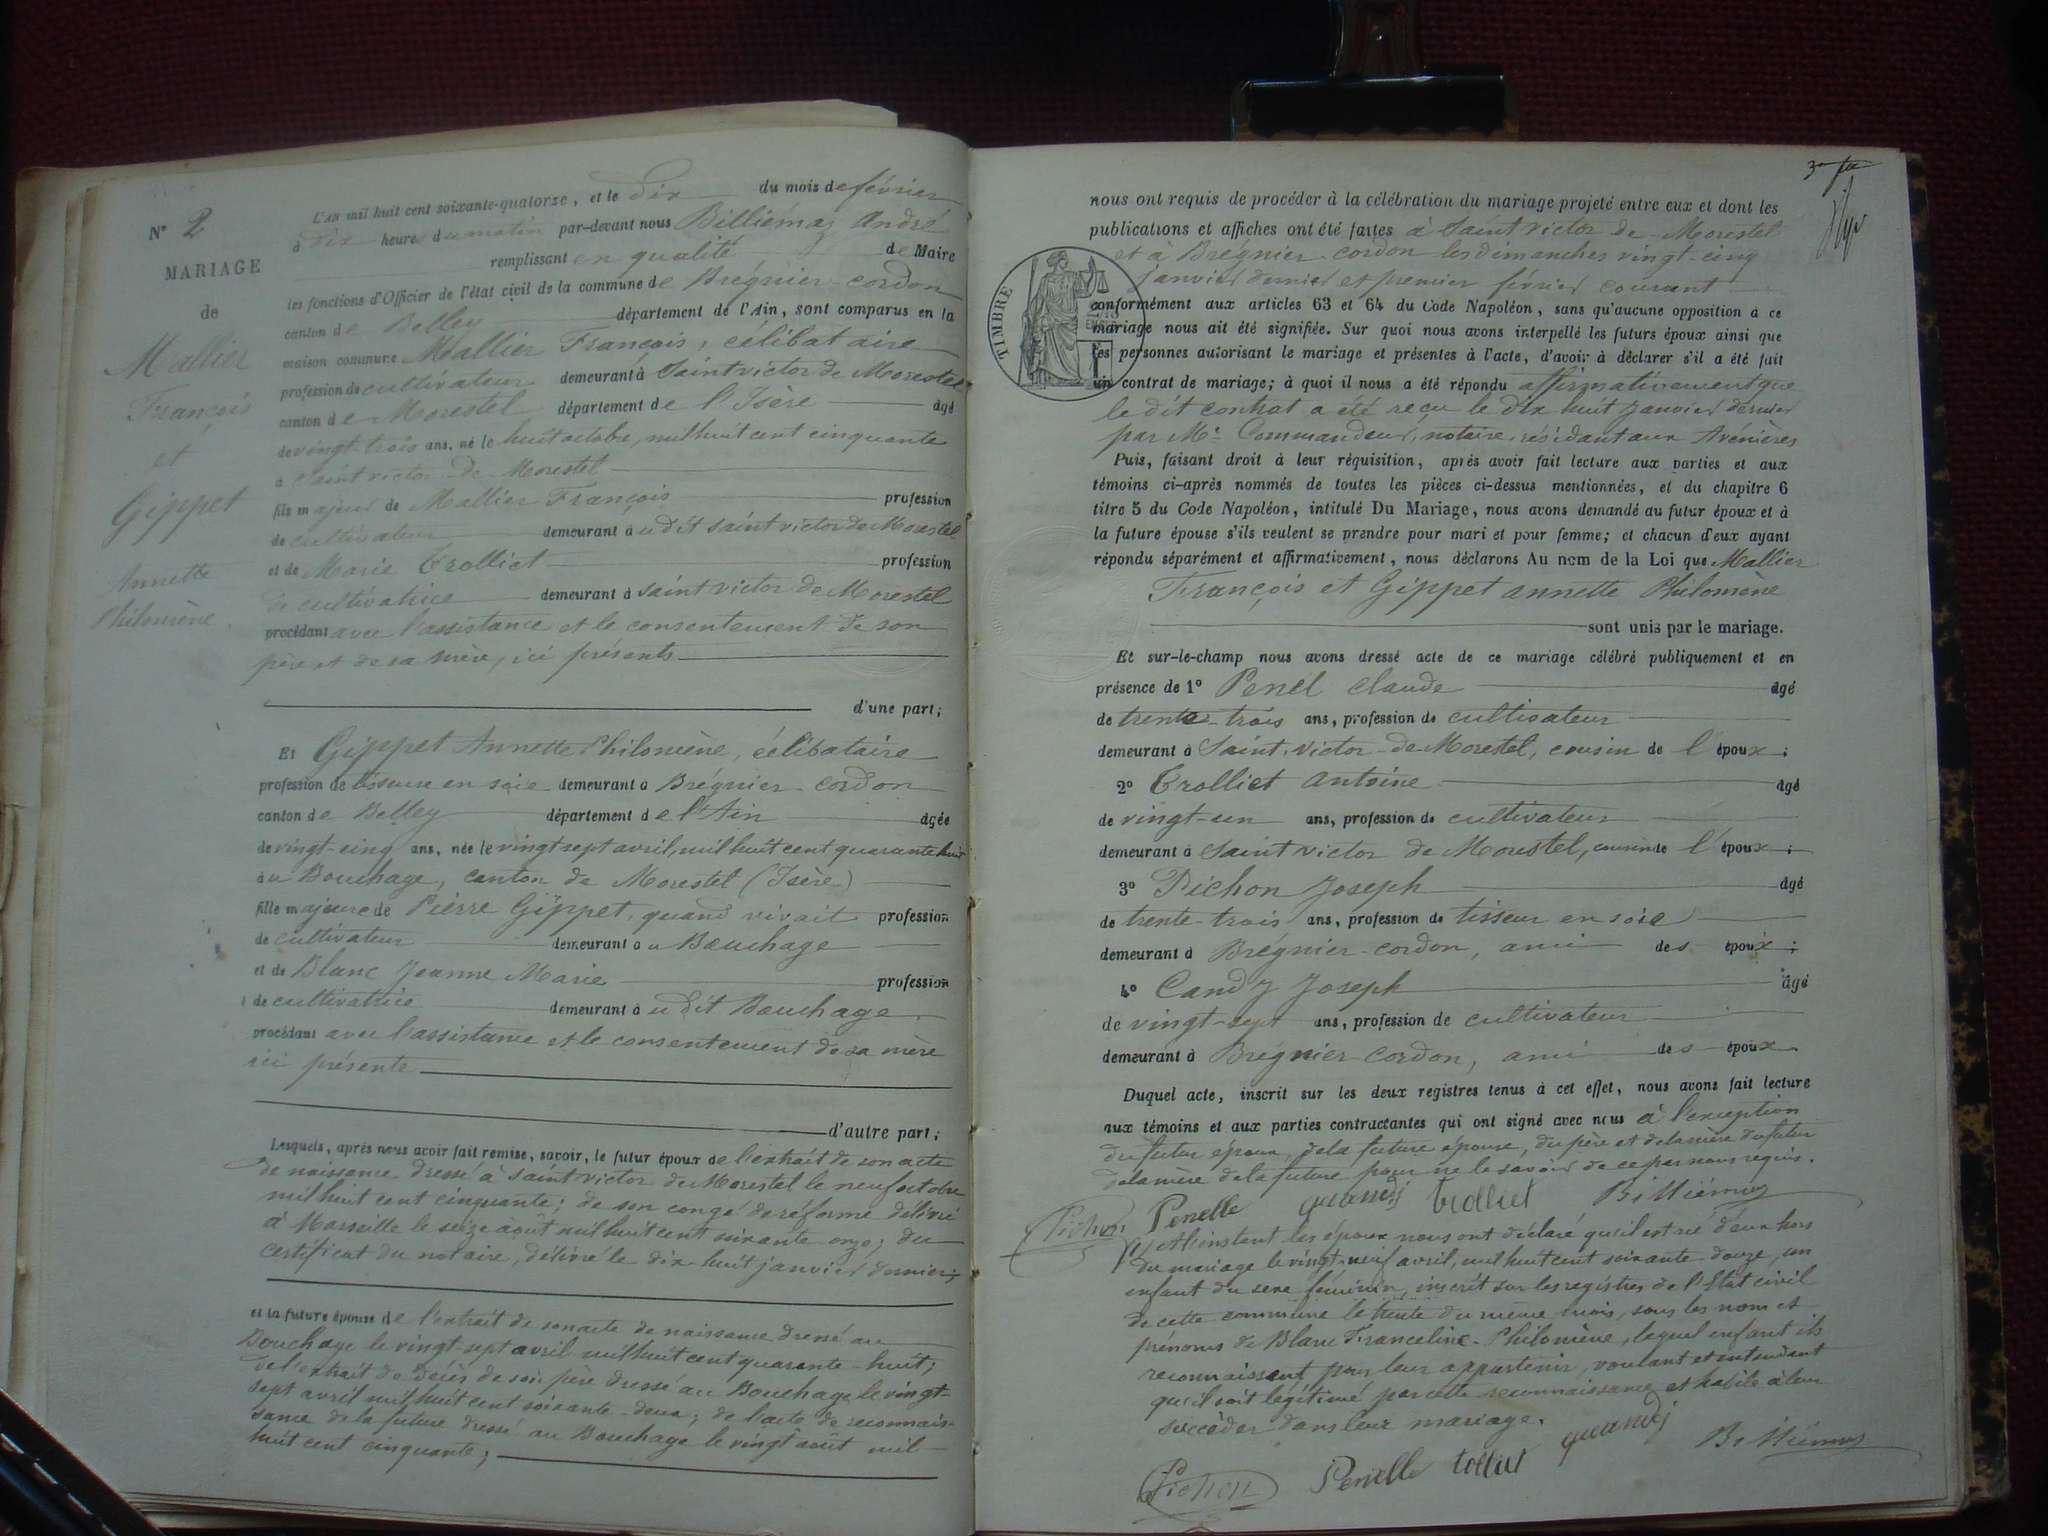 N° 2
MARIAGE
de
Mallier
François
et
Gippet
Annette
Philomène.
L'AN mil huit cent soixante-quatorze, et le dix du mois de février
à dix heures du matin par-devant nous Billiémaz André
remplissant en qualité de Maire
les fonctions d'Officier de l'état civil de la commune de Brégnier-cordon
canton de Belley département de l'Ain, sont comparus en la
maison commune Mallier François, célibataire
profession de cultivateur demeurant à Saint victor de Morestel
canton de Morestel département de l'Isère âgé
de vingt-trois ans, né le huit octobre, mil huit cent cinquante
à Saint victor-de Morestel
fils majeur de Mallier François profession
de cultivateur demeurant àu dit saint victor de Morestel
et de Marie Trolliet profession
de cultivatrice demeurant à saint victor de Morestel
procédant avec l'assistance et le consentement de son
père et de sa mère, ici présents
d'une part;
Et Gippet Annette Philomène, célibataire
profession de tisseuse en soie demeurant à Brégnier-cordon
canton de Belley département de l'Ain âgée
de vingt-cinq ans, née le vingt sept avril, mil huit cent quarante huit
au Bouchage, canton de Morestel (Isère)
fille majeure de Pierre Gippet, quand vivait profession
de cultivateur demeurant au Bouchage
et de Blanc Jeanne Marie profession
de cultivatrice demeurant àu dit Bouchage.
procédant avec l'assistance et le consentement de sa mère
ici présente
d'autre part;
Lesquels, après nous avoir fait remise, savoir, le futur époux de l'extrait de son acte
de naissance dressé à Saint victor de Morestel le neuf octobre
mil huit cent cinquante; de son congé de réforme délivré
à Marseille le seize août mil huit cent soixante onze; du
certificat du notaire, délivré le dix-huit janvier dernier;
et la future épouse de l'extrait de son acte de naissance dressé au
Bouchage le vingt-sept avril mil huit cent quarante-huit;
de l'extrait de décès de son père dressé au Bouchage le vingt-
sept avril mil huit cent soixante-deux; de l'acte de reconnais-
sance de la future dressé au Bouchage le vingt août mil-
huit cent cinquante;
nous ont requis de procéder à la célébration du mariage projeté entre eux et dont les
publications et affiches ont été faites à Saint victor de-Morestel
et à Brégnier-cordon les dimanches vingt-cinq
janvier dernier et premier février courant
TIMBRE
conformément aux articles 63 et 64 du Code Napoléon, sans qu'aucune opposition à ce
mariage nous ait été signifiée. Sur quoi nous avons interpellé les futurs époux ainsi que
les personnes autorisant le mariage et présentes à l'acte, d'avoir à déclarer s'il a été fait
un contrat de mariage; à quoi il nous a été répondu affirmativement que
le dit contrat a été reçu le dix huit janvier dernier
par Me Commandeur, notaire, résidant aux Avénières
Puis, faisant droit à leur réquisition, après avoir fait lecture aux parties et aux
témoins ci-après nommés de toutes les pièces ci-dessus mentionnées, et du chapitre 6
titre 5 du Code Napoléon, intitulé Du Mariage, nous avons demandé au futur époux et à
la future épouse s'ils veulent se prendre pour mari et pour femme; et chacun d'eux ayant
répondu séparément et affirmativement, nous déclarons Au nom de la Loi que Mallier
François et Gippet annette Philomène
sont unis par le mariage.
Et sur-le-champ nous avons dressé acte de ce mariage célébré publiquement et en
présence de 1° Penel Claude âgé
de trente-trois ans, profession de cultivateur
demeurant à Saint-victor-de Morestel, cousin de l'époux;
2° Trolliet Antoine âgé
de vingt-un ans, profession de cultivateur
demeurant à Saint victor de Morestel, cousin de l'époux;
3° Pichon Joseph âgé
de trente-trois ans, profession de tisseur en soie
demeurant à Brégnier-cordon, ami des époux;
4° Candy Joseph âgé
de vingt-sept ans, profession de cultivateur
demeurant à Brégnier-cordon, ami des époux.
Duquel acte, inscrit sur les deux registres tenus à cet effet, nous avons fait lecture
aux témoins et aux parties contractantes qui ont signé avec nous à l'exception
du futur époux, de la future épouse, du père et de la mère du futur
de la mère de la future pour ne le savoir de ce par nous requis.
Pichon Penelle quandj trolliet Billiémaz
A l'instant les époux nous ont déclaré qu'il est né d'eux hors
du mariage le vingt-neuf avril, mil huit cent soixante douze, un
enfant du sexe féminin, inscrit sur les registres de l'Etat civil
de cette commune le trente du même mois, sous les nom et
prénoms de Blanc Franceline-Philomène, lequel enfant ils
reconnaissent pour leur appartenir, voulant et entendant
qu'il soit légitimé par cette reconnaissance et habile à leur
succéder dans leur mariage.
Pichon Penelle trolliet quandj Billiémaz